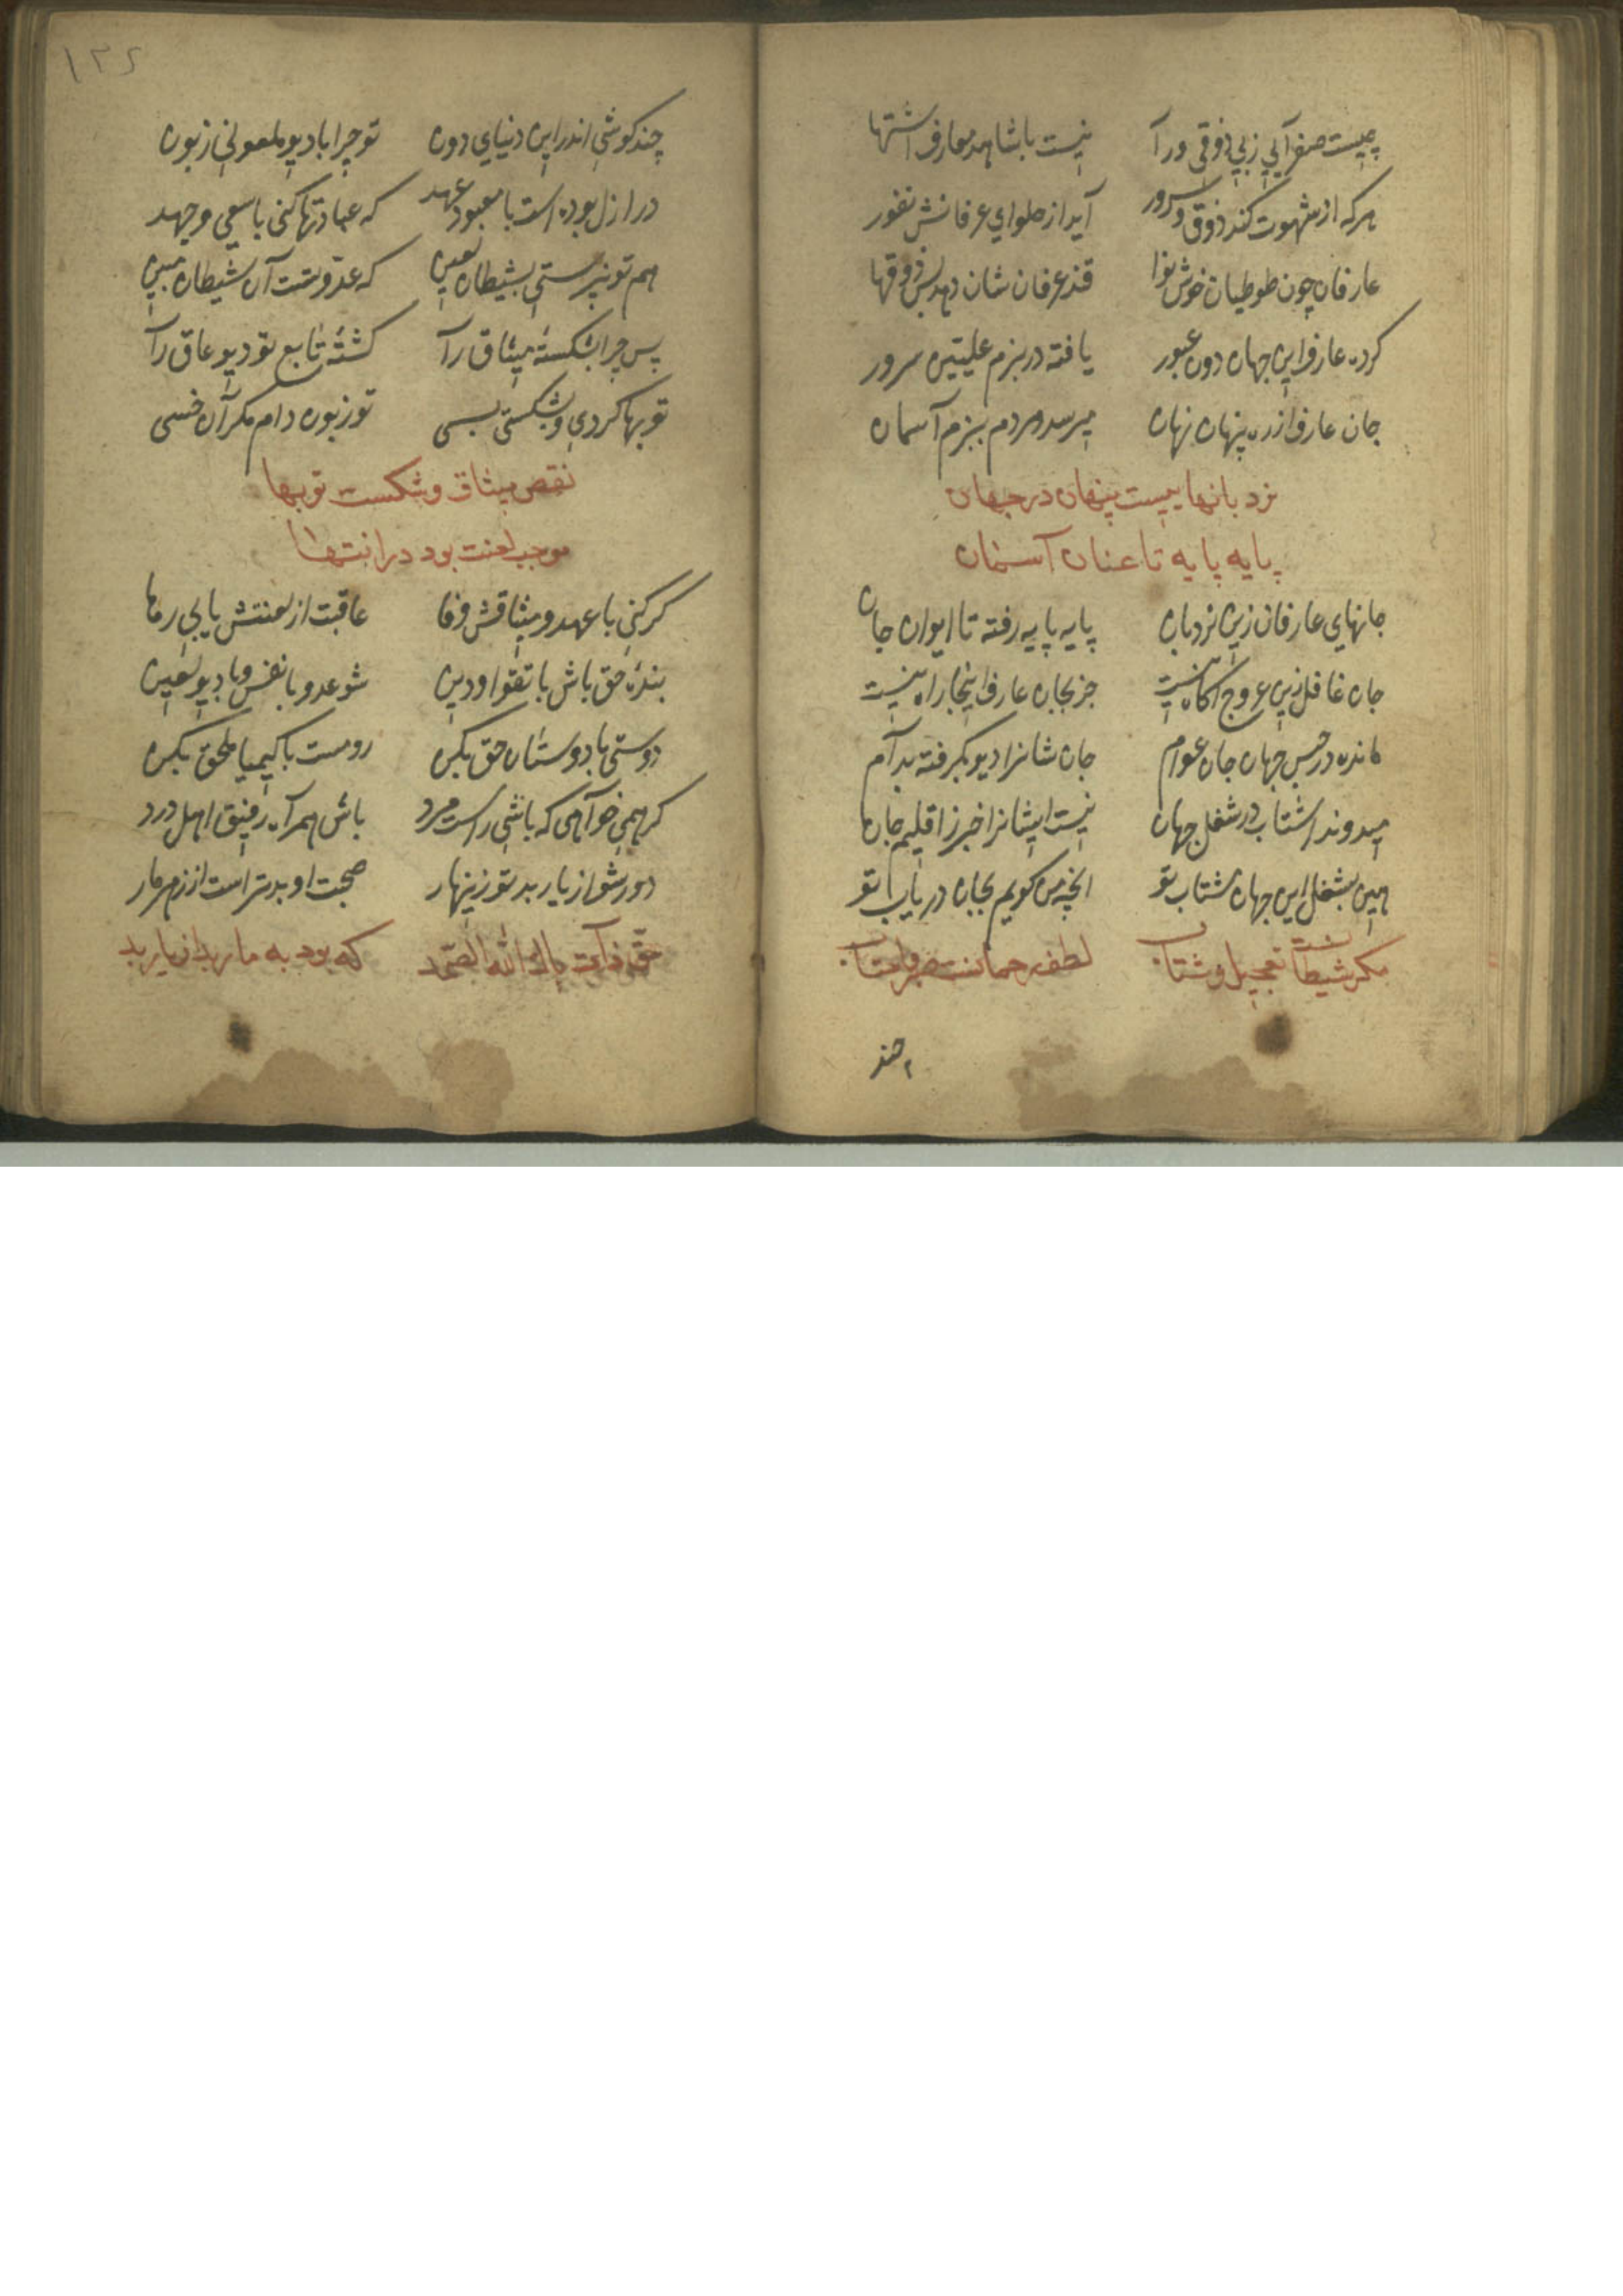 چیست صفرا آبی زبی ذوقی ورآ نیست باشاهد معارف اشتها
هرکه از شهوت کند ذوق و سرور آید از حلوای عرفانش نفور
عارفان چون طوطیان خوش نوا قند عرفان شان دهد بس ذوقها
کرده عارف این جهان دون عبور یافته در بزم علیین سرور
جان عارف از ره پنهان نهان میرسد هردم ببزم آسمان
نردبانهاییست پنهان در جهان
پایه پایه تا عنان آسمان
جانهای عارفان زین نردبان پایه پایه رفته تا ایوان جان
جان غافل زین عروج آکاه نیست جز بجان عارف اینجا راه نیست
مانده در حبس جهان جان عوام جان شانرا دیو بکرفته بدآم
میدوند اشتاب در شغل جهان نیست ایشانرا خبر ز اقلیم جان
هین بشغل این جهان مشتاب تو انچه من کویم بجان دریاب تو
مکر شیطانست تعجیل و شتاب لطف رحمانست صبر و احتساب
چند
١٣٤
چند کوشی اندر این دنیای دون تو چرا با دیو ملعونی زبون
در ازل بوده است با معبود عهد که عبادتها کنی با سعی و جهد
هم تو نپرستی بشیطان لعین که عدوتست آن شیطان مبین
پس چرا بشکستهٔ میثاق رآ کشتهٔ تابع تو دیو عاق رآ
توبها کردی و بشکستی بسی تو زبون دام مکر آن خسی
نقض میثاق و شکست توبها
موجب لعنت بود در انتها
کر کنی با عهد و میثاقش وفا عاقبت از لعنتش یابی رها
بندهٔ حق باش با تقوا و دین شو عدو با نفس و با دیو لعین
دوستی با دوستان حق بکن رو مست با کیمیا ملحق بکن
کر همی خوآهی که باشی راست مرد باش همرآه رفیق اهل درد
دور شو از یار بد تو زینهار صحبت او بدتر است از زهر مار
حق ذات پاك الله الصمد که بود به مار بد از یار بد